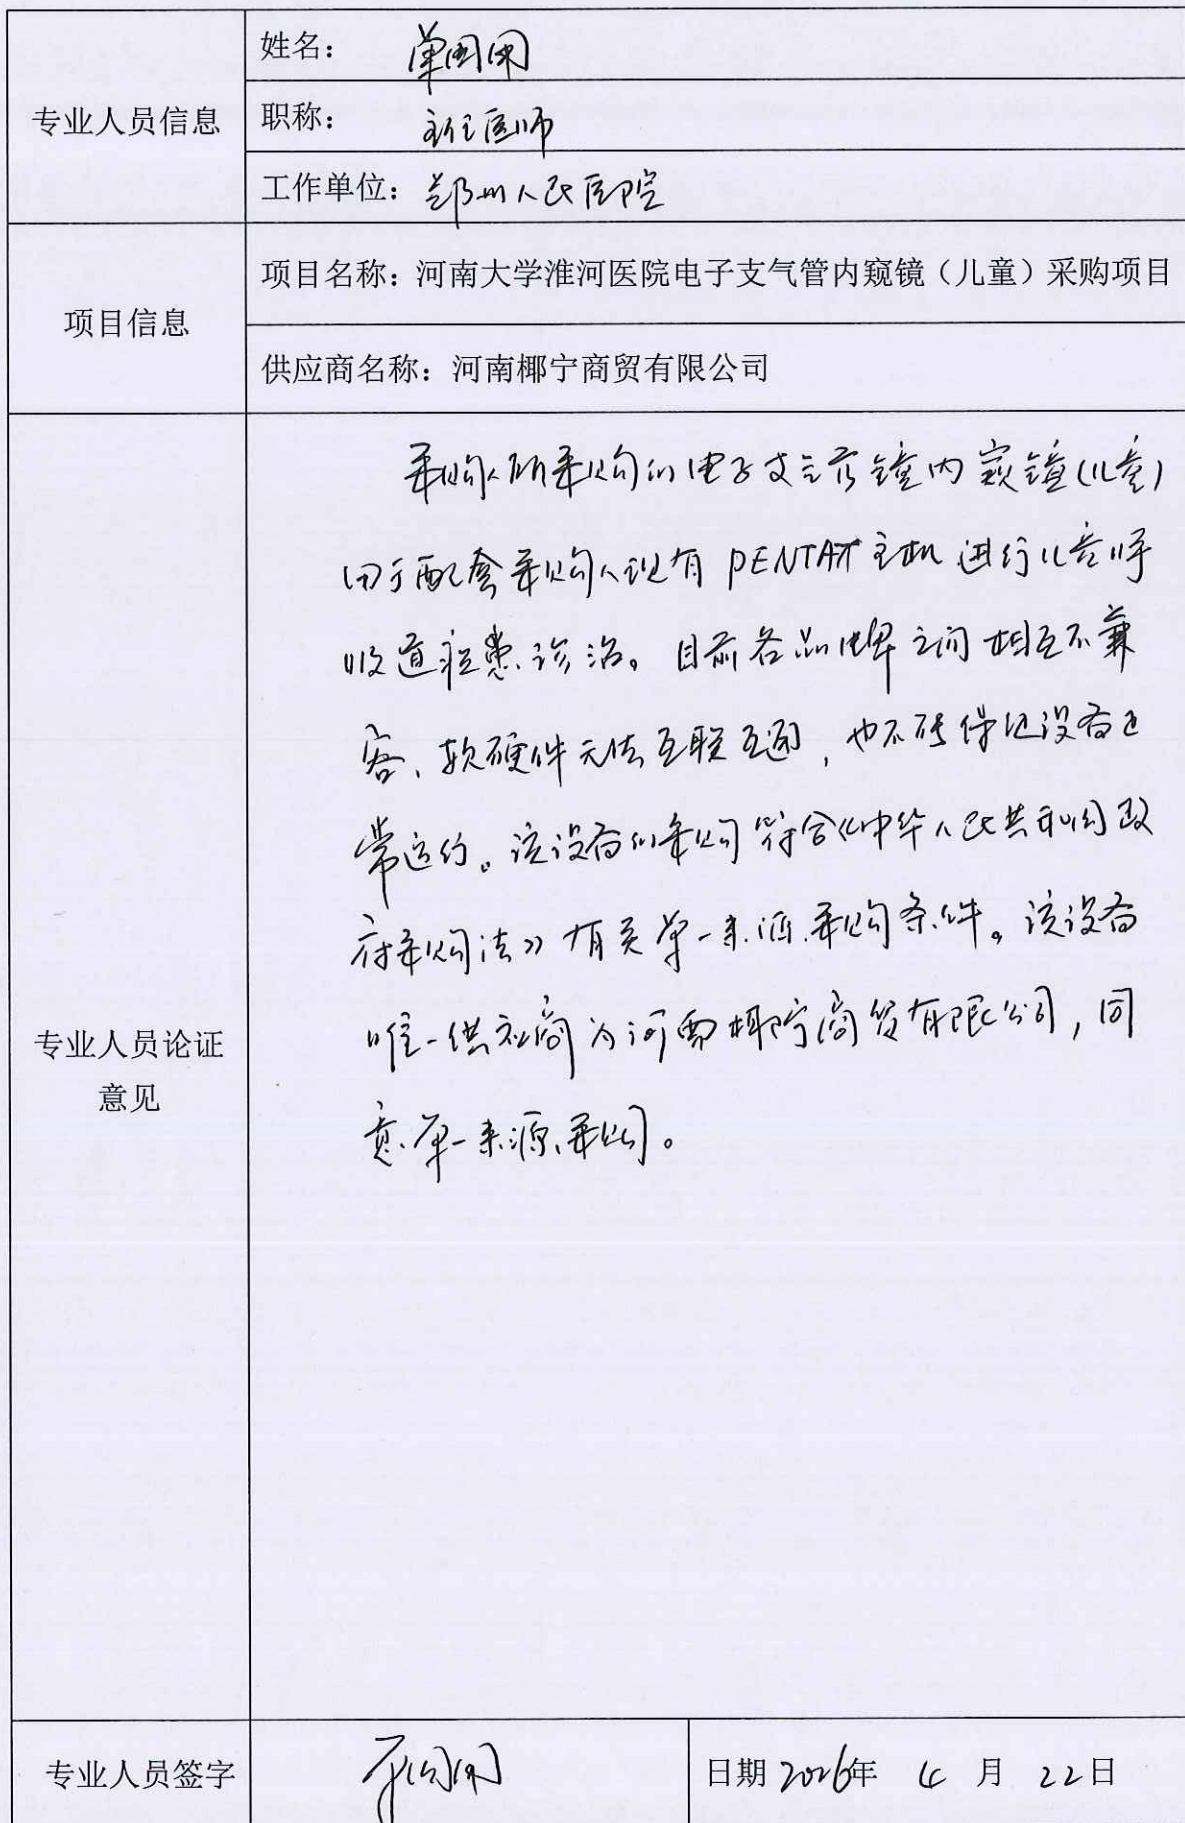 专业人员信息
姓名：单国用
职称：主任医师
工作单位：郑州人民医院
项目信息
项目名称：河南大学淮河医院电子支气管内窥镜（儿童）采购项目
供应商名称：河南椰宁商贸有限公司
专业人员论证
意见
采购人所采购的电子支气管镜内窥镜(儿童)
用于配套采购人现有PENTAX主机进行儿童呼
吸道疾患诊治。目前各品牌之间相互不兼
容、软硬件无法互联互通，也不能保证设备正
常运行。该设备的采购符合《中华人民共和国政
府采购法》有关单一来源采购条件。该设备
唯一供应商为河南椰宁商贸有限公司，同
意单一来源采购。
专业人员签字
日期 2026年 4 月 22日